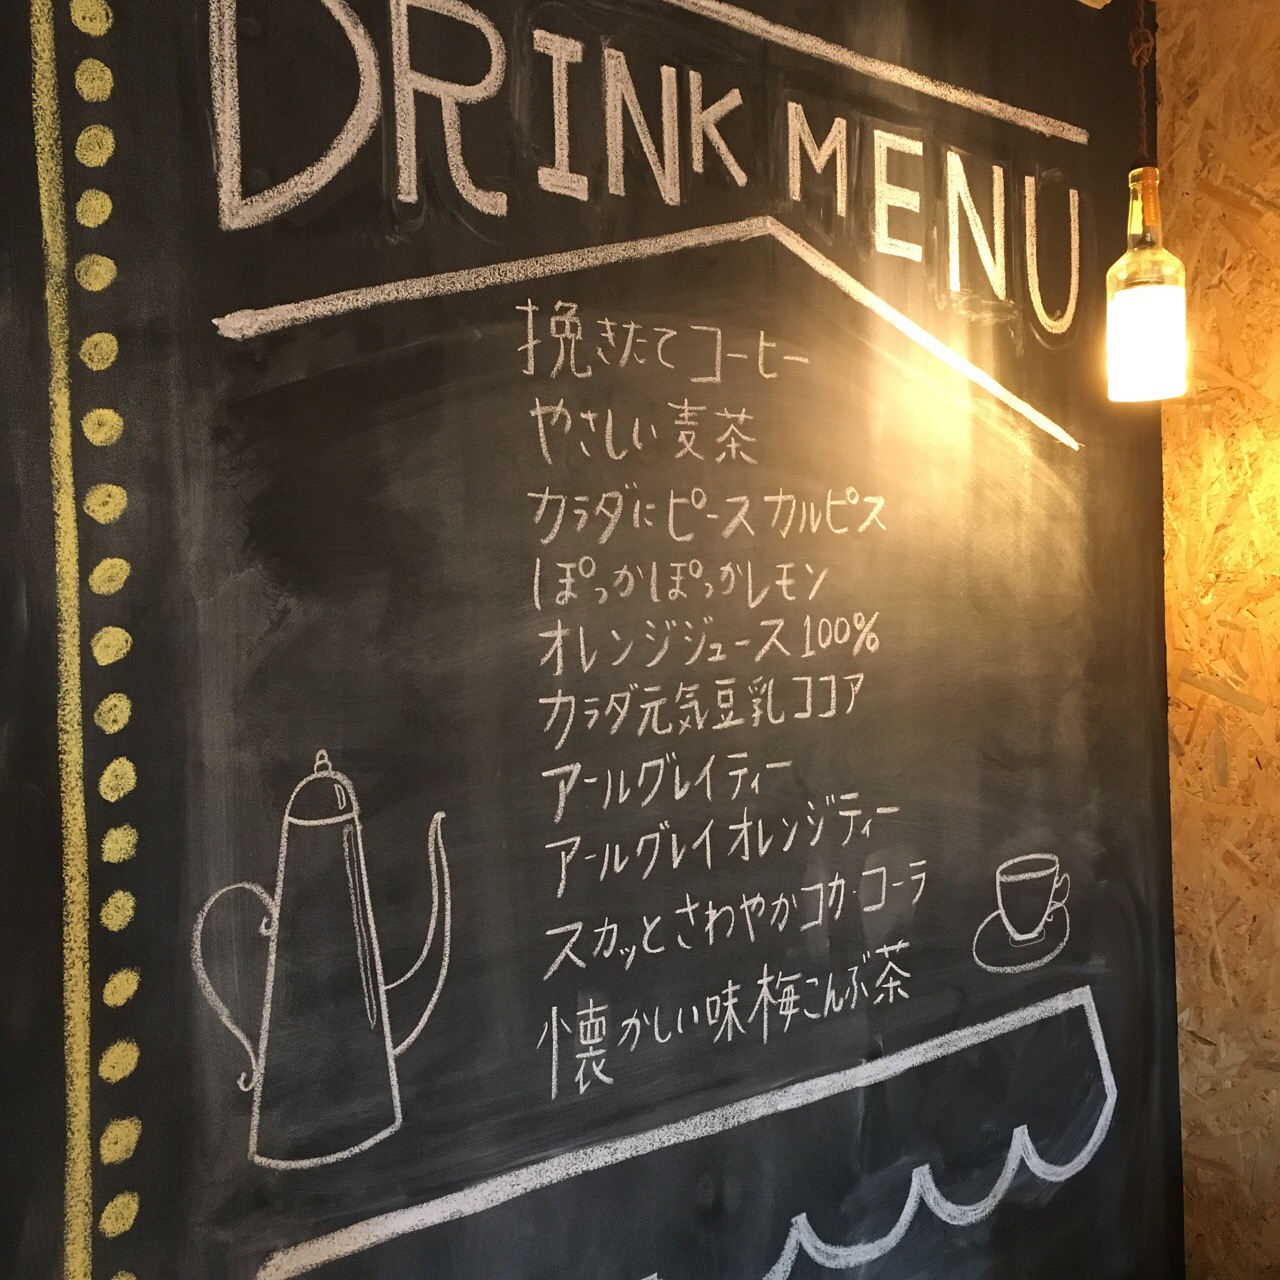 DRINK MENU
挽きたてコーヒー
やさしい麦茶
カラダにピース カルピス
ぽっかぽっかレモン
オレンジジュース100%
カラダ元気豆乳ココア
アールグレイティー
アールグレイオレンジティー
スカッとさわやかコカ・コーラ
懐かしい味梅こんぶ茶